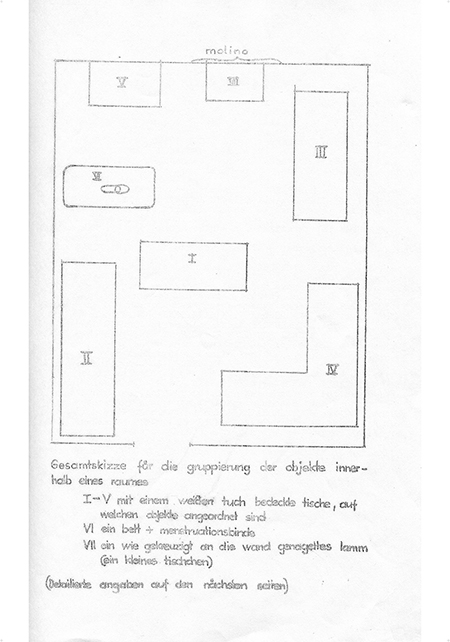 molino
V
VII
III
VI
I
II
IV
Gesamtskizze für die gruppierung der objekte inner-
halb eines raumes
I-V mit einem weißen tuch bedeckte tische, auf
welchen objekte angeordnet sind
VI ein bett + menstruationsbinde
VII ein wie gekreuzigt an die wand genageltes lamm
(ein kleines tischchen)
(Detailierte angaben auf den nächsten seiten)